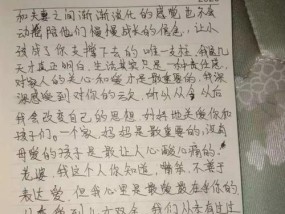 和夫妻之间渐渐淡化的感觉也不会
动摇陪他们慢慢成长的信念,让小
孩成了你支撑下去的唯一支柱,我这几
天才真正明白,生活其实只是一种责任感,
对家人的关心和爱才是最重要的,我深
深感受到对你的亏欠,所以从今以后
我会改变自己的思想,好好地关爱你和
孩子们。一个家,妈妈是最重要的,没有
母爱的孩子是最让人心碎心痛的!
老婆,我这个人你知道,嘴笨,不善于
表达爱,但我心里是最爱最在乎你的